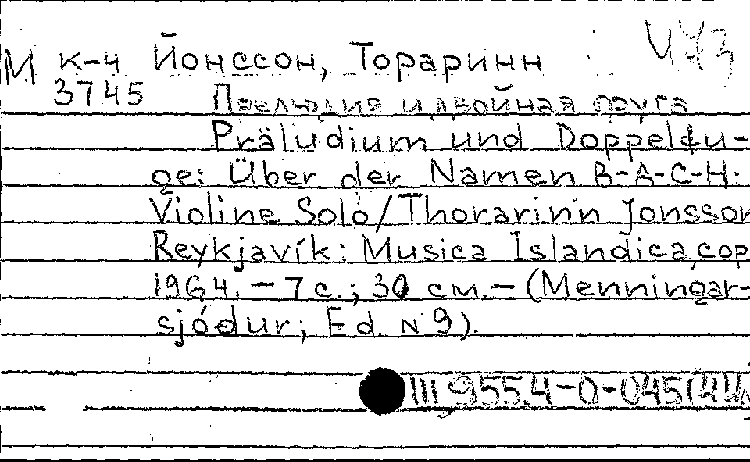 М к-ч Йонссон, Тораринн
3745 Прелюдия и двойная фуга
Präludium und Doppelfu-
ge: Über der Namen B-A-C-H:
Violine Solo/Thorarinn Jonsson
Reykjavík: Musica Islandica, cop
1964. – 7 с.; 30 см. – (Menningar-
sjódur; Ed. N 9).
III 955.4-0-045(4И